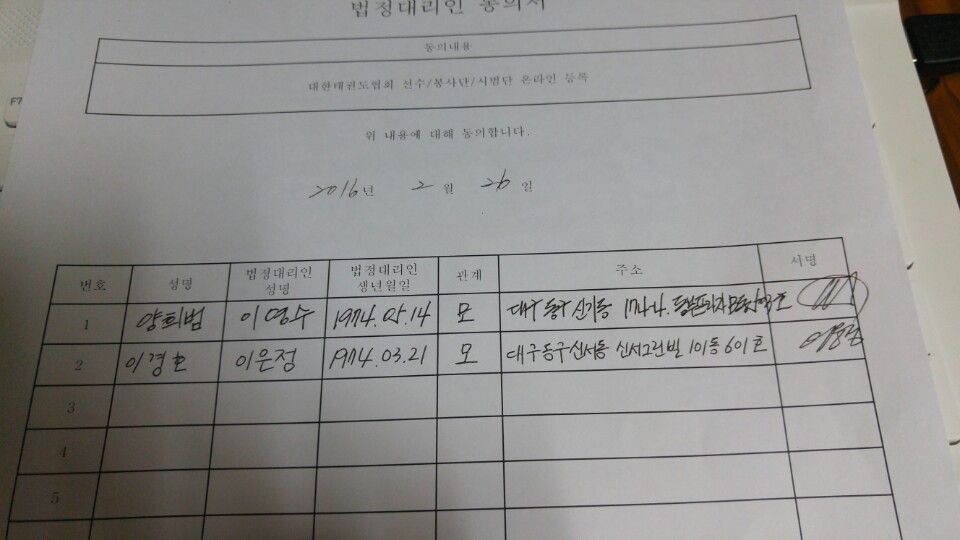 법정대리인 동의서
동의내용
대한태권도협회 선수/봉사단/시범단 온라인 등록
위 내용에 대해 동의합니다.
2016년 2월 26일
번호 성명 법정대리인 성명 법정대리인 생년월일 관계 주소 서명
1 양희범 이영수 1974.05.14 모 대구 동구 신기동 호
2 이경호 이은정 1974.03.21 모 대구동구신서동 신서그린빌 101동 601호
3
4
5
F7